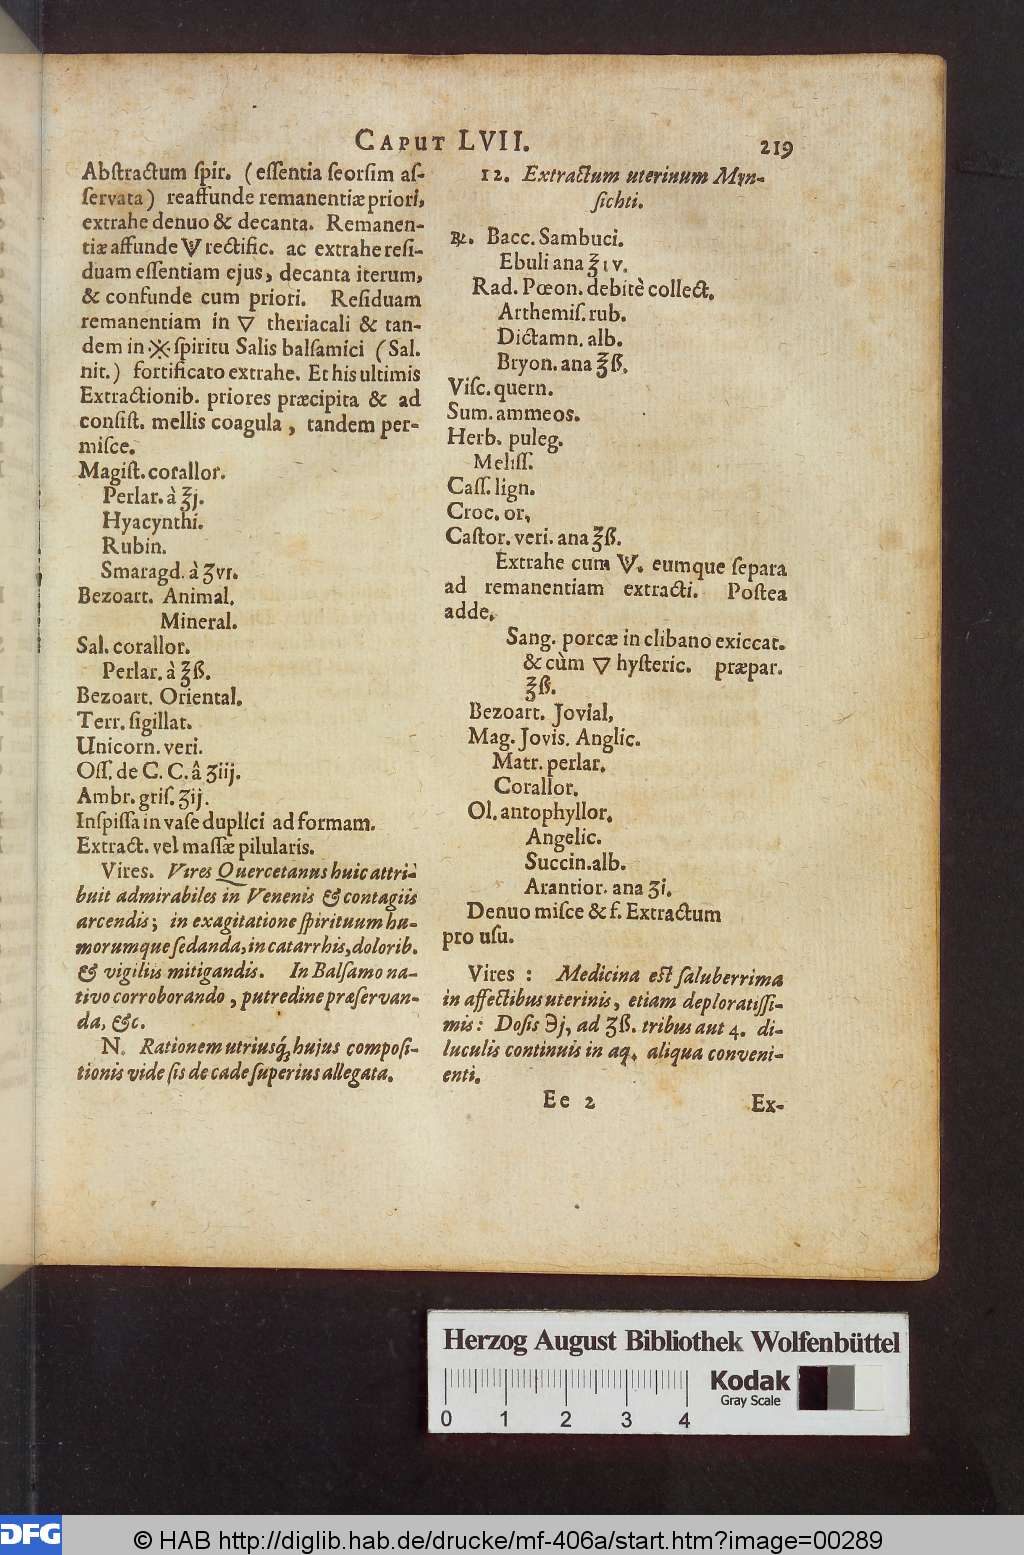 CAPUT LVII. 219
Abſtractum ſpir. (eſſentia ſeorſim aſ-
ſervata) reaffunde remanentiæ priori,
extrahe denuo & decanta. Remanen-
tiæ affunde 🜈 rectific. ac extrahe reſi-
duam eſſentiam ejus, decanta iterum,
& confunde cum priori. Reſiduam
remanentiam in ▽ theriacali & tan-
dem in ※ ſpiritu Salis balſamici (Sal.
nit.) fortificato extrahe. Et his ultimis
Extractionib. priores præcipita & ad
conſiſt. mellis coagula, tandem per-
miſce.
Magiſt. corallor.
Perlar. à ℥j.
Hyacynthi.
Rubin.
Smaragd. à ʒvr.
Bezoart. Animal.
Mineral.
Sal. corallor.
Perlar. à ℥ß.
Bezoart. Oriental.
Terr. ſigillat.
Unicorn. veri.
Oſſ. de C. C. â ʒiij.
Ambr. griſ. ʒij.
Inſpiſſa in vaſe duplici ad formam.
Extract. vel maſſæ pilularis.
Vires. Vires Quercetanus huic attri-
buit admirabiles in Venenis & contagiis
arcendis; in exagitatione ſpirituum hu-
morumque ſedanda, in catarrhis, dolorib.
& vigiliis mitigandis. In Balſamo na-
tivo corroborando, putredine præſervan-
da, &c.
N. Rationem utriusq́; hujus compoſi-
tionis vide ſis de cade ſuperius allegata.
12. Extractum uterinum Myn-
ſichti.
℞. Bacc. Sambuci.
Ebuli ana ℥ıv.
Rad. Pœon. debitè collect.
Arthemiſ. rub.
Dictamn. alb.
Bryon. ana ℥ß.
Viſc. quern.
Sum. ammeos.
Herb. puleg.
Meliſſ.
Caſſ. lign.
Croc. or,
Caſtor. veri. ana ℥ß.
Extrahe cum 🜈. eumque ſepara
ad remanentiam extracti. Poſtea
adde,
Sang. porcæ in clibano exiccat.
& cùm ▽ hyſteric. præpar.
℥ß.
Bezoart. Jovial,
Mag. Jovis. Anglic.
Matr. perlar.
Corallor.
Ol. antophyllor.
Angelic.
Succin. alb.
Arantior. ana ʒi.
Denuo miſce & f. Extractum
pro uſu.
Vires : Medicina eſt ſaluberrima
in affectibus uterinis, etiam deploratiſſi-
mis: Doſis ℈j, ad ʒß. tribus aut 4. di-
luculis continuis in aq. aliqua conveni-
enti.
Ee 2 Ex-
Herzog August Bibliothek Wolfenbüttel
Kodak
Gray Scale
0 1 2 3 4
DFG © HAB http://diglib.hab.de/drucke/mf-406a/start.htm?image=00289